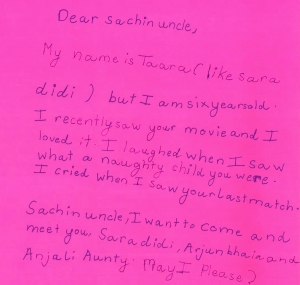 Dear sachin uncle,
My name is Taara (like sara
didi) but I am six years old.
I recently saw your movie and I
loved it. I laughed when I saw
what a naughty child you were.
I cried when I saw your last match.
Sachin uncle, I want to come and
meet you, Sara didi, Arjun bhaia and
Anjali Aunty. May I Please?